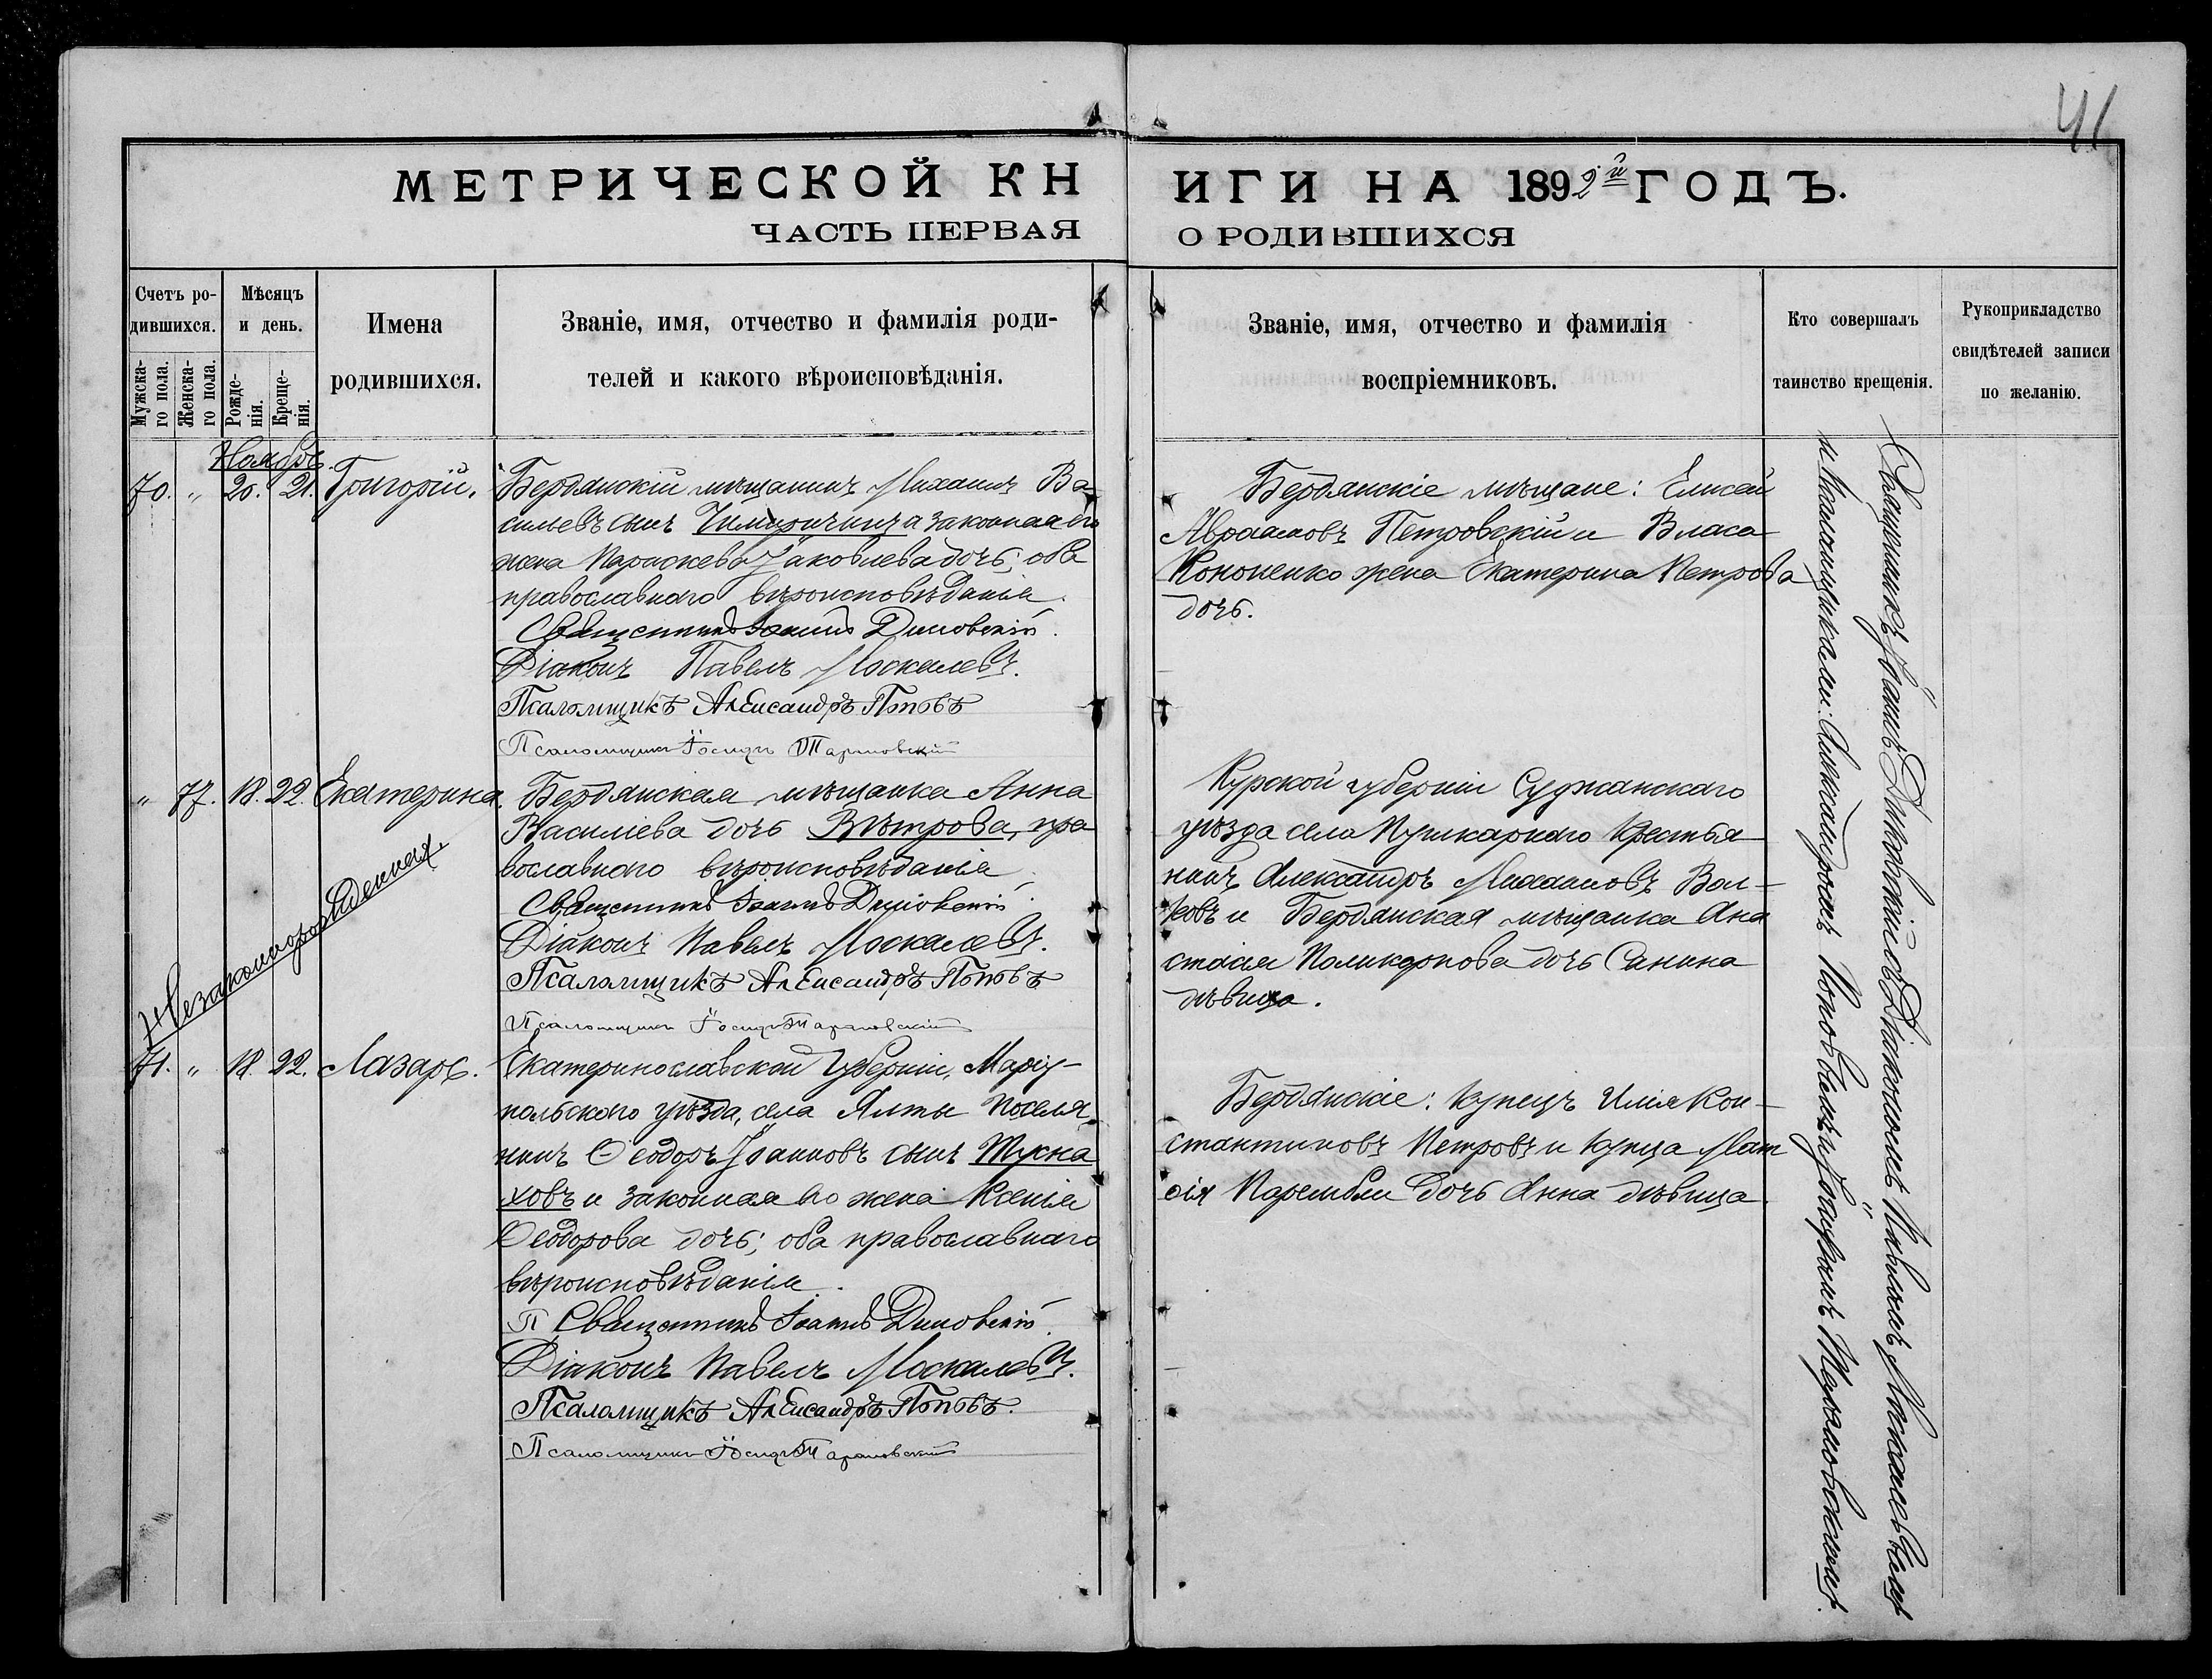 41
МЕТРИЧЕСКОЙ КНИГИ НА 1892й ГОДЪ.
ЧАСТЬ ПЕРВАЯ О РОДИВШИХСЯ
Счетъ ро-
дившихся.
Мужска-
го пола.
Женска-
го пола.
Мѣсяцъ
и день.
Рожде-
нія.
Креще-
нія.
Имена
родившихся.
Званіе, имя, отчество и фамилія роди-
телей и какого вѣроисповѣданія.
Званіе, имя, отчество и фамилія
воспріемниковъ.
Кто совершалъ
таинство крещенія.
Рукоприкладство
свидѣтелей записи
по желанію.
Ноябрь
70. „ 20. 21. Григорій.
Бердянскій мѣщанинъ Михаилъ Ва-
сильевъ сынъ и законная его
жена Параскева Яковлева дочь; оба
православнаго вѣроисповѣданія.
Священникъ Іоаннъ Диковскій.
Діаконъ Павелъ Москалевъ.
Псаломщикъ Александръ Поповъ
Псаломщикъ Іосифъ Тарановскій
Бердянскіе мѣщане: Елисей
Авраамовъ Петровскій и Власа
Кононенко жена Екатерина Петрова
дочь.
„ 77. 18. 22. Екатерина
Незаконнорожденная.
Бердянская мѣщанка Анна
Василіева дочь Вѣтрова, пра-
вославнаго вѣроисповѣданія
Священникъ Іоаннъ Диковскій.
Діаконъ Павелъ Москалевъ.
Псаломщикъ Александръ Поповъ
Псаломщикъ Іосифъ Тарановскій
Курской губерніи Суджанскаго
уѣзда села Пушкарнаго Крестья-
нинъ Александръ Михаиловъ Вол-
ковъ и Бердянская мѣщанка Ана
стасія Поликарпова дочь Санина
дѣвица.
71. „ 18. 22. Лазарь.
Екатеринославской Губерніи, Маріу-
польскаго уѣзда, села Ялты Поселя-
нинъ Ѳеодоръ Іоанновъ сынъ
ховъ и законная его жена Ксенія
Ѳеодорова дочь; оба православнаго
вѣроисповѣданія.
П Священникъ Іоаннъ Диковскій.
Діаконъ Павелъ Москалевъ.
Псаломщикъ Александръ Поповъ.
Псаломщикъ Іосифъ Тарановскій
Бердянскіе: Купецъ Илія Кон-
стантиновъ Петровъ и Купца Мат
ѳія дочь Анна дѣвица.
Священникъ Іоаннъ Диковскій съ Діакономъ Павломъ Москалевымъ
и Псаломщиками: Александромъ Поповымъ и Іосифомъ Тарановскимъ.